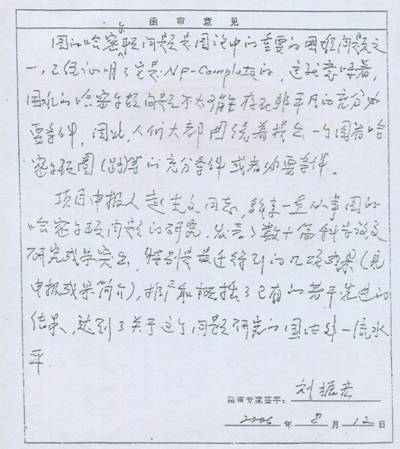 函审意见
图的哈密顿问题是图论中的重要的困难问题之
一,已经证明了它是NP-Complete的,这就意味着,
图的哈密尔顿问题不太可能存在非平凡的充分必
要条件,因此,人们大都围绕着找出一个图有哈
密尔顿圈(路)的充分条件或者必要条件。
项目申报人 同志,一直从事图的
哈密尔顿问题的研究,发表了数十篇科学论文
研究成果突出,特别是最近得到的几项成果(见
申报成果简介),推广和概括了已有的若干先进的
结果,达到了关于这个问题研究的国际一流水
平
函审专家签字:刘振宏
2006年2月12日